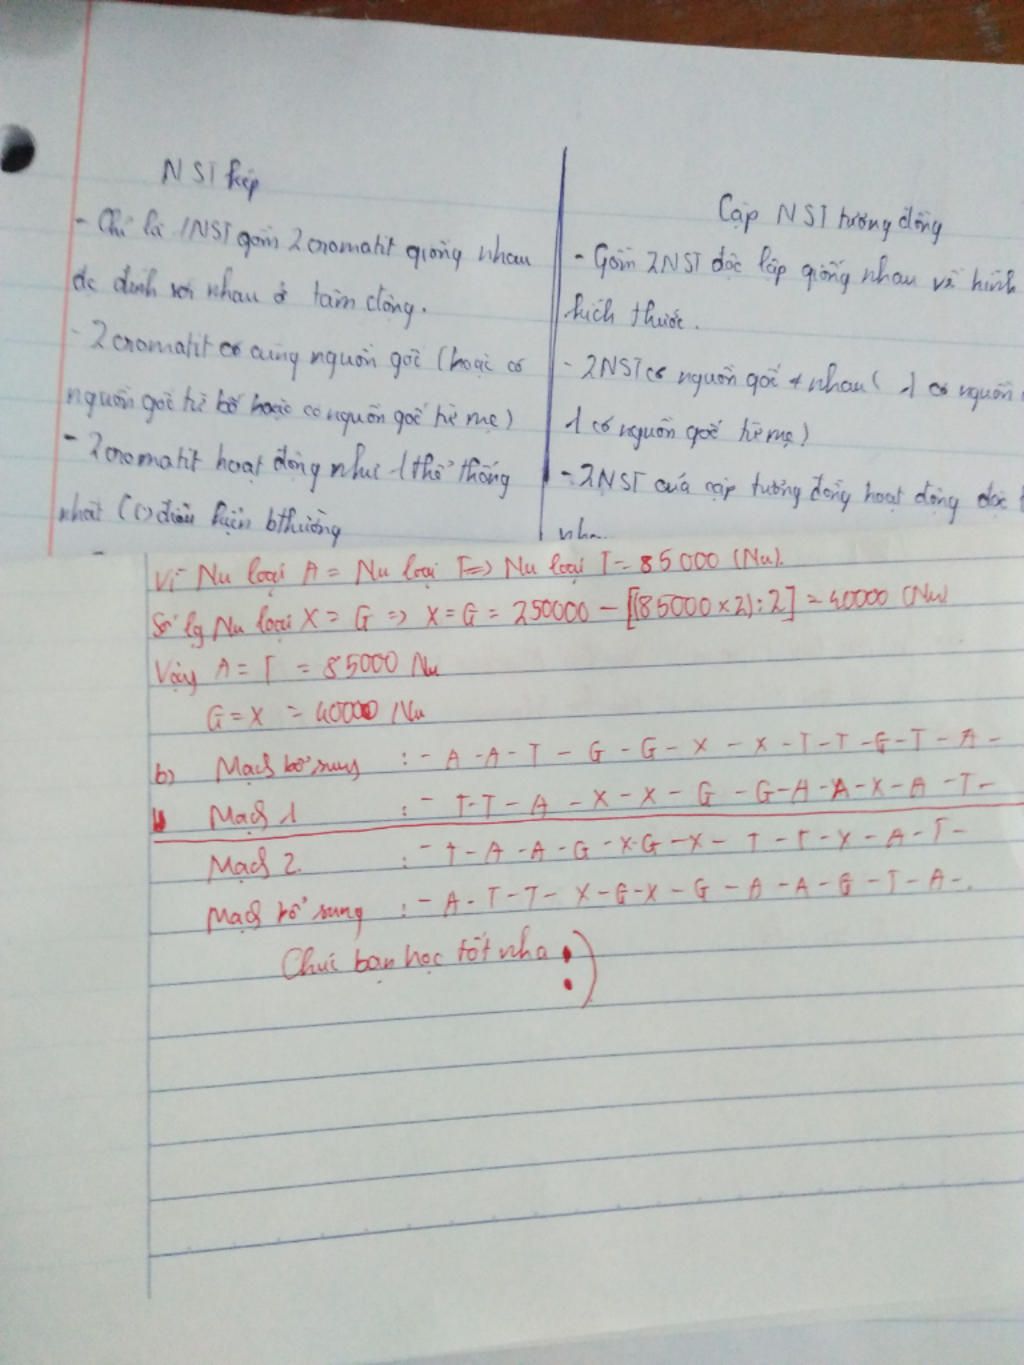 NST kép
- Chỉ là 1NST gồm 2 cromatit giống nhau
đc đính với nhau ở tâm động.
- 2 cromatit có cùng nguồn gốc (hoặc có
nguồn gốc từ bố hoặc có nguồn gốc từ mẹ)
- 2 cromatit hoạt động như 1 thể thống
nhất (t) điều kiện bthường
Cặp NST tương đồng
- Gồm 2NST độc lập giống nhau về hình
kích thước.
- 2NST có nguồn gốc ≠ nhau ( 1 có nguồn
1 có nguồn gốc từ mẹ)
- 2NST của cặp tương đồng hoạt động độc
Vì Nu loại A = Nu loại T => Nu loại T = 85000 (Nu).
Số lg Nu loại X = G => X = G = 250000 - [(85000 x 2) : 2] = 40000 (Nu)
Vậy A = T = 85000 Nu
G = X = 40000 Nu
b) Mạch bổ sung : - A - A - T - G - G - X - X - T - T - G - T - A -
Mạch 1 : - T - T - A - X - X - G - G - A - A - X - A - T -
Mạch 2 : - T - A - A - G - X - G - X - T - T - X - A - T -
Mạch bổ sung : - A - T - T - X - G - X - G - A - A - G - T - A -.
Chúc bạn học tốt nha :)